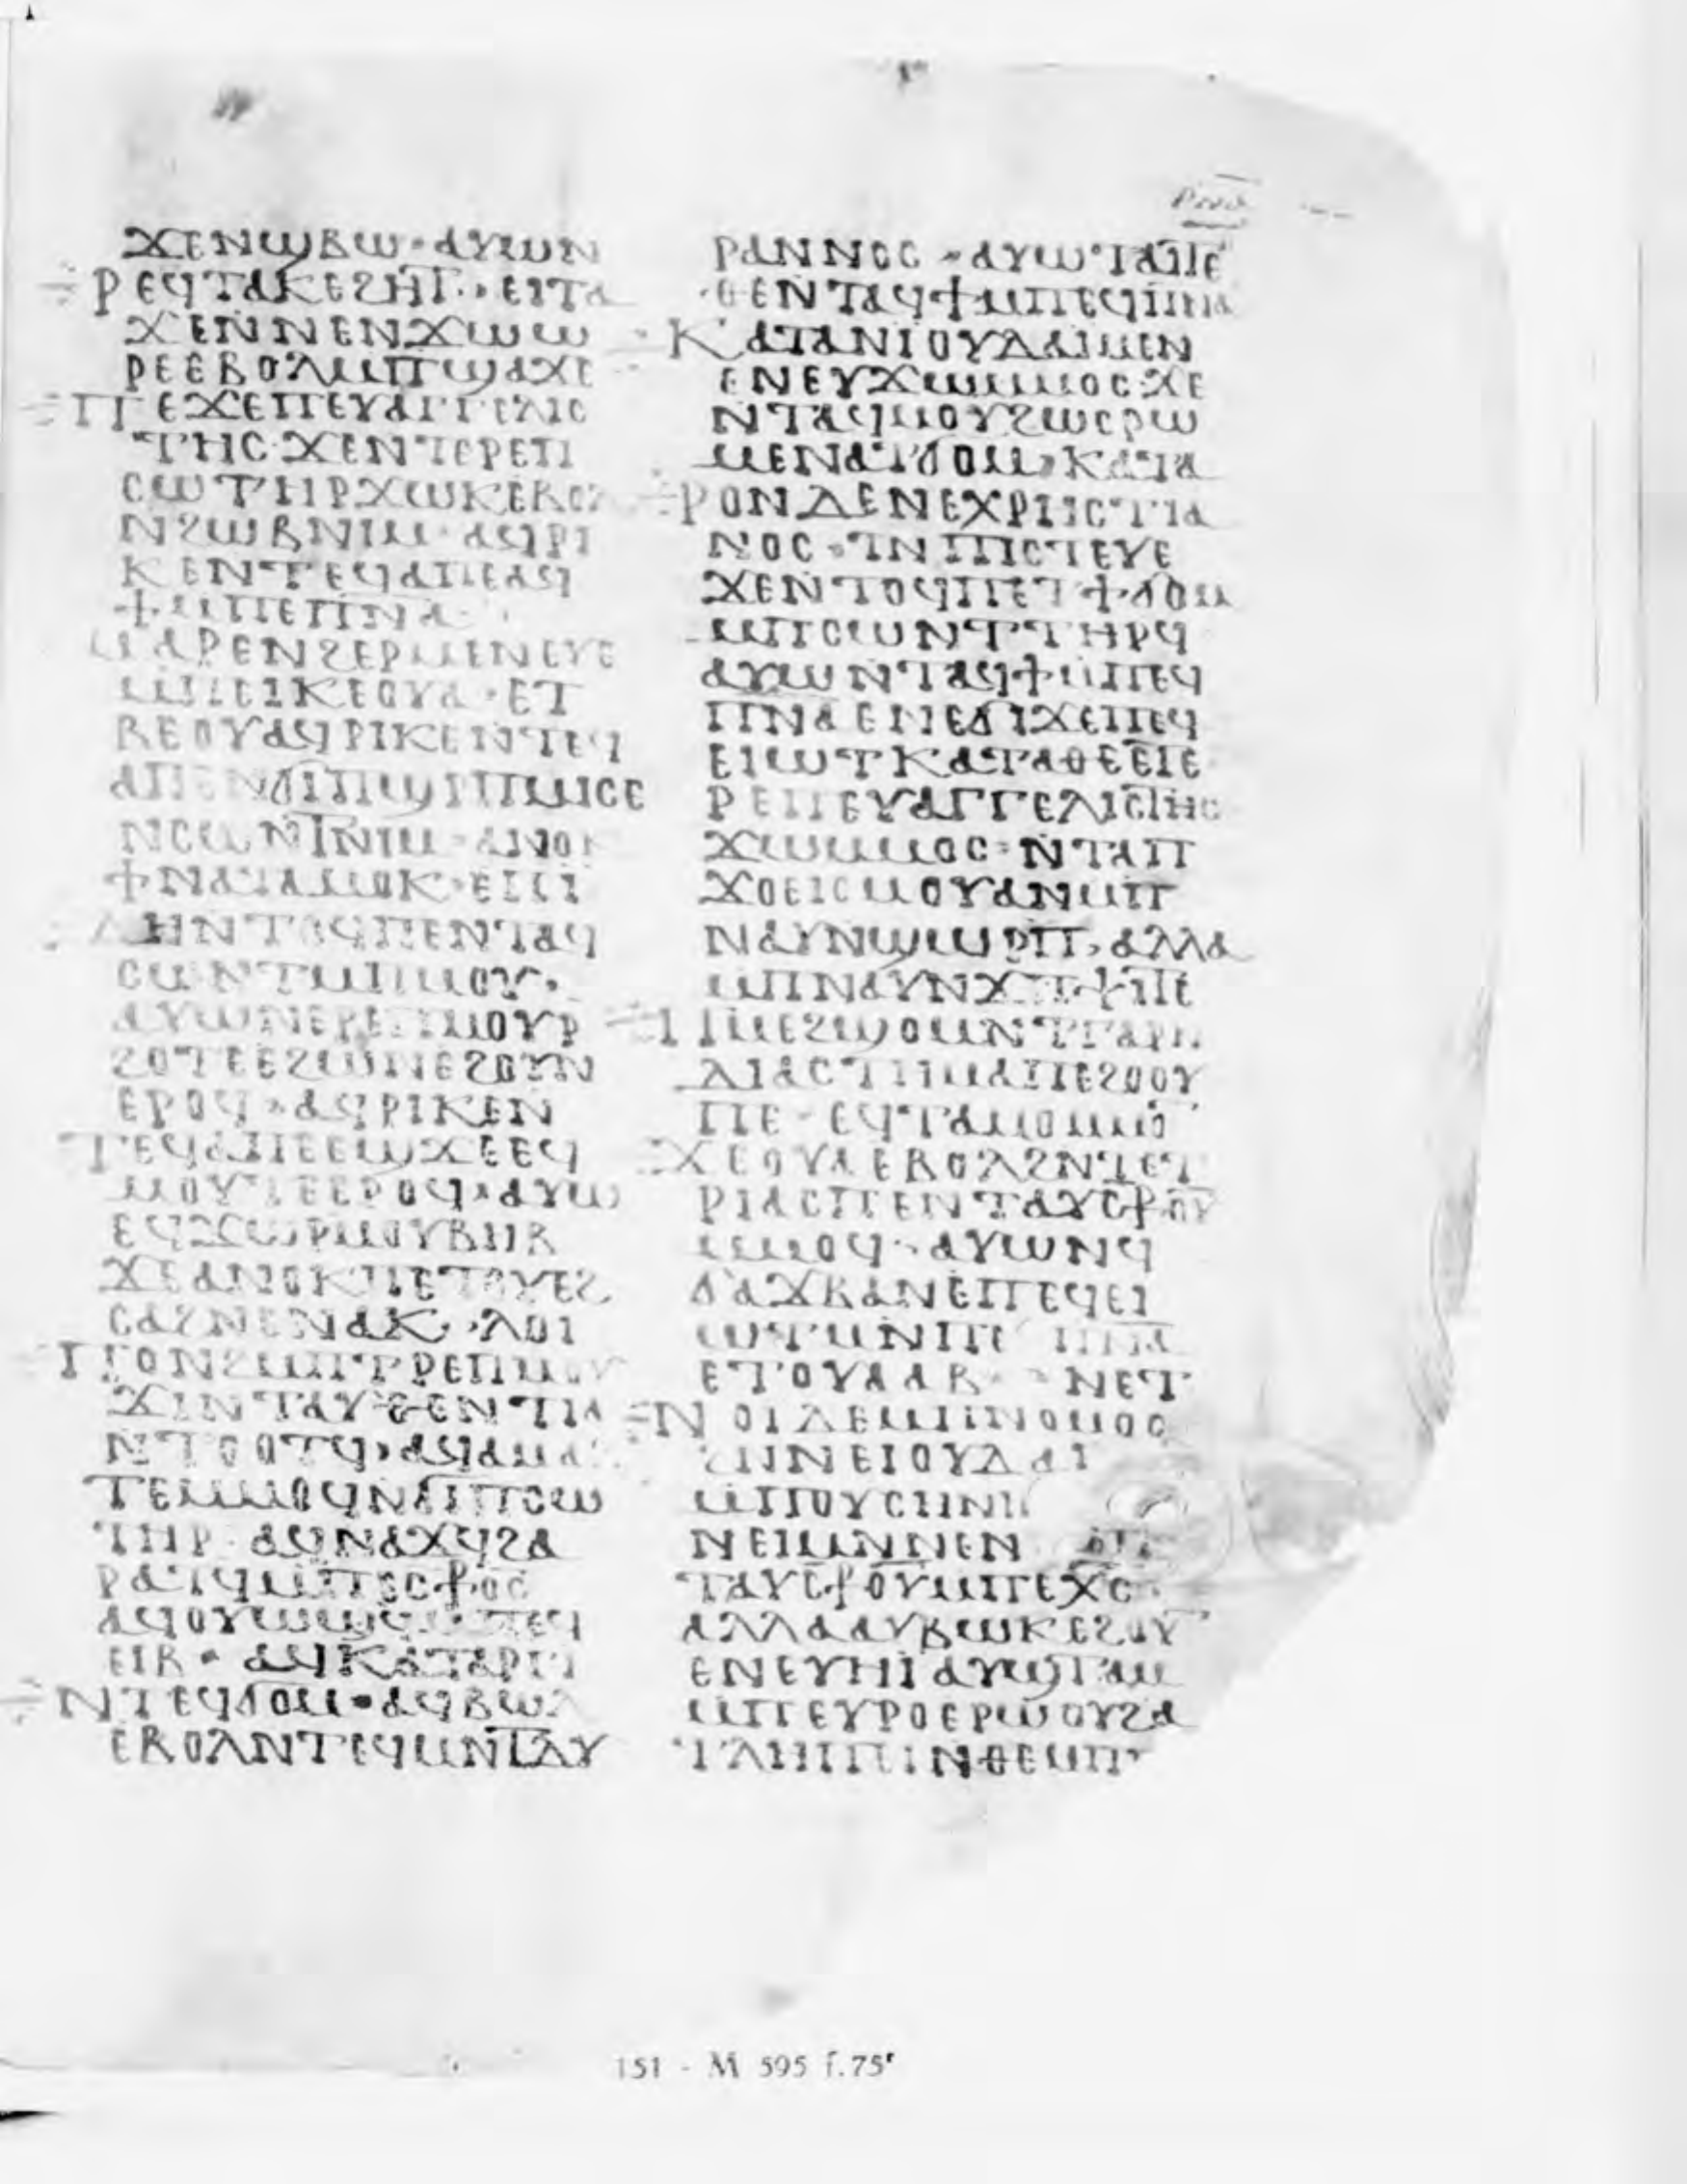 ϪⲈⲚϢⲂⲰ· ⲀⲨⲰⲚ
ⲢⲈϤⲦⲀⲔⲈϨⲎⲦ· ⲈⲒⲦⲀ
ϪⲈⲚⲚⲈⲚϪⲰⲰ
ⲢⲈⲈⲂⲞⲖⲘⲠϢⲀϪⲈ
ⲠⲈϪⲈⲠⲈⲨⲀⲄⲄⲈⲖⲒⲤ
ⲦⲎⲤ·ϪⲈⲚⲦⲈⲢⲈⲠ
ⲤⲰⲦⲎⲢϪⲰⲔⲈⲂⲞⲖ
ⲚϨⲰⲂⲚⲒⲘ· ⲀϤⲢⲒ
ⲔⲈⲚⲦⲈϤⲀⲠⲈⲀϤ
ϮⲘⲠⲈⲠⲚⲀ
ⲘⲀⲢⲈⲚϨⲈⲢⲘⲈⲚⲈⲨⲈ
ⲘⲠⲈⲒⲔⲈⲞⲨⲀ· ⲈⲦ
ⲂⲈⲞⲨⲀϤⲢⲒⲔⲈⲚⲦⲈϤ
ⲀⲠⲈⲚϬⲒⲠϢⲢⲠⲘⲘⲒⲤⲈ
ⲚⲤⲰⲚⲦⲚⲒⲘ· ⲀⲚⲞⲔ
ϮⲚⲀⲦⲀⲘⲞⲔ· ⲈⲠⲒ
ⲆⲎⲚⲦⲞϤⲠⲈⲚⲦⲀϤ
ⲤⲰⲚⲦⲘⲠⲘⲞⲨ·
ⲀⲨⲰⲚⲈⲢⲈⲠⲘⲞⲨⲢ
ϨⲞⲦⲈⲈϨⲰⲚⲈϨⲞⲨⲚ
ⲈⲢⲞϤ· ⲀϤⲢⲒⲔⲈⲚ
ⲦⲈϤⲀⲠⲈⲈⲰϪⲈⲈϤ
ⲘⲞⲨⲦⲈⲈⲢⲞϤ· ⲀⲨⲰ
ⲈϤϪⲰⲢⲘⲞⲨⲂⲎⲂ
ϪⲈⲀⲚⲞⲔⲠⲈⲦⲞⲨⲈϨ
ⲤⲀϨⲚⲈⲚⲀⲔ· ⲖⲞⲒ
ⲠⲞⲚϨⲘⲠⲦⲢⲈⲠⲘⲞⲨ
ϪⲒⲚⲦⲀⲨⲐⲈⲚⲦⲒⲀ
ⲚⲦⲞⲞⲦϤ· ⲀϤⲀⲘⲀϨ
ⲦⲈⲘⲘⲞϤⲚϬⲒⲠⲤⲰ
ⲦⲎⲢ· ⲀϤⲚⲀϪϤϨⲀ
ⲢⲀⲦϤⲘⲠⲈⲤ⳨ⲞⲤ
ⲀϤⲞⲨⲰϢϤ ⲦⲈϤ
ⲈⲒⲂ· ⲀϤⲔⲀⲦⲀⲢⲄⲒ
ⲚⲦⲈϤϬⲞⲘ· ⲀϤⲂⲰⲖ
ⲈⲂⲞⲖⲚⲦⲈϤⲘⲚⲦⲆⲨ
ⲢⲀⲚⲚⲞⲤ· ⲀⲨⲰⲦⲀⲒⲦⲈ
ⲐⲈⲚⲦⲀϤϮⲘⲠⲈϤⲠⲚⲀ
ⲔⲀⲦⲀⲚⲒⲞⲨⲆⲀⲒⲘⲈⲚ
ⲈⲚⲈⲨϪⲰⲘⲘⲞⲤ·ϪⲈ
ⲚⲦⲀϤⲘⲞⲨϨⲰⲤⲢⲰ
ⲘⲈⲚⲀⲦϬⲞⲘ· ⲔⲀⲦⲀ
ⲢⲞⲚⲆⲈⲚⲈⲬⲢⲎⲤⲦⲒⲀ
ⲚⲞⲤ· ⲦⲚⲠⲒⲤⲦⲈⲨⲈ
ϪⲈⲚⲦⲞϤⲠⲈⲦϮϬⲞⲘ
ⲘⲠⲤⲰⲚⲦⲦⲎⲢϤ
ⲀⲨⲰⲚⲦⲀϤϮⲘⲠⲈϤ
ⲠⲚⲀⲈⲚⲈϬⲒϪⲈⲠⲈϤ
ⲈⲒⲰⲦⲔⲀⲦⲀⲐⲈⲈⲦⲈ
ⲢⲈⲠⲈⲨⲀⲄⲄⲈⲖⲒⲤⲦⲎⲤ
ϪⲰⲘⲘⲞⲤ· ⲚⲦⲀⲠ
ϪⲞⲈⲒⲤⲘⲞⲨⲀⲚⲘⲠ
ⲚⲀⲨⲚϢⲰⲢⲠ· ⲀⲖⲖⲀ
ⲘⲠⲚⲀⲨⲚϪⲠϮⲦⲈ
ⲠⲘⲈϨϢⲞⲘⲚⲦⲄⲀⲢⲚ
ⲆⲒⲀⲤⲦⲎⲘⲀⲠⲈϨⲞⲞⲨ
ⲠⲈ· ⲈϤⲦⲀⲘⲞⲘⲘⲞ
ϪⲈⲞⲨⲀⲈⲂⲞⲖϨⲚⲦⲈⲦ
ⲢⲒⲀⲤⲠⲈⲚⲦⲀⲨⲤ⳨ⲞⲨ
ⲘⲘⲞϤ· ⲀⲨⲰⲚϤ
ϬⲀϪⲂⲀⲚⲈⲠⲈϤⲈⲒ
ⲰⲦⲘⲚⲠⲈ ⲠⲚⲀ
ⲈⲦⲞⲨⲀⲀⲂ· ⲚⲈⲦ
ⲚⲞⲒⲆⲈⲘⲠⲚⲞⲘⲞⲤ
ϨⲚⲚⲈⲒⲞⲨⲆⲀⲒ
ⲘⲠⲞⲨⲤⲎⲚⲎ
ⲚⲈⲒⲘⲚⲚⲈⲚ
ⲦⲀⲨⲤ⳨ⲞⲨⲘⲠⲈⲬⲤ
ⲀⲖⲖⲀⲀⲨⲂⲰⲔⲈϨⲞⲨ
ⲈⲚⲈⲨⲎⲒⲀⲨϢⲦⲀⲘ
ⲘⲠⲈⲨⲢⲞⲈⲢⲰⲞⲨϨⲀ
ⲠⲖⲎⲠⲒⲚⲐⲈⲘⲠ
151 - M 595 f.75r